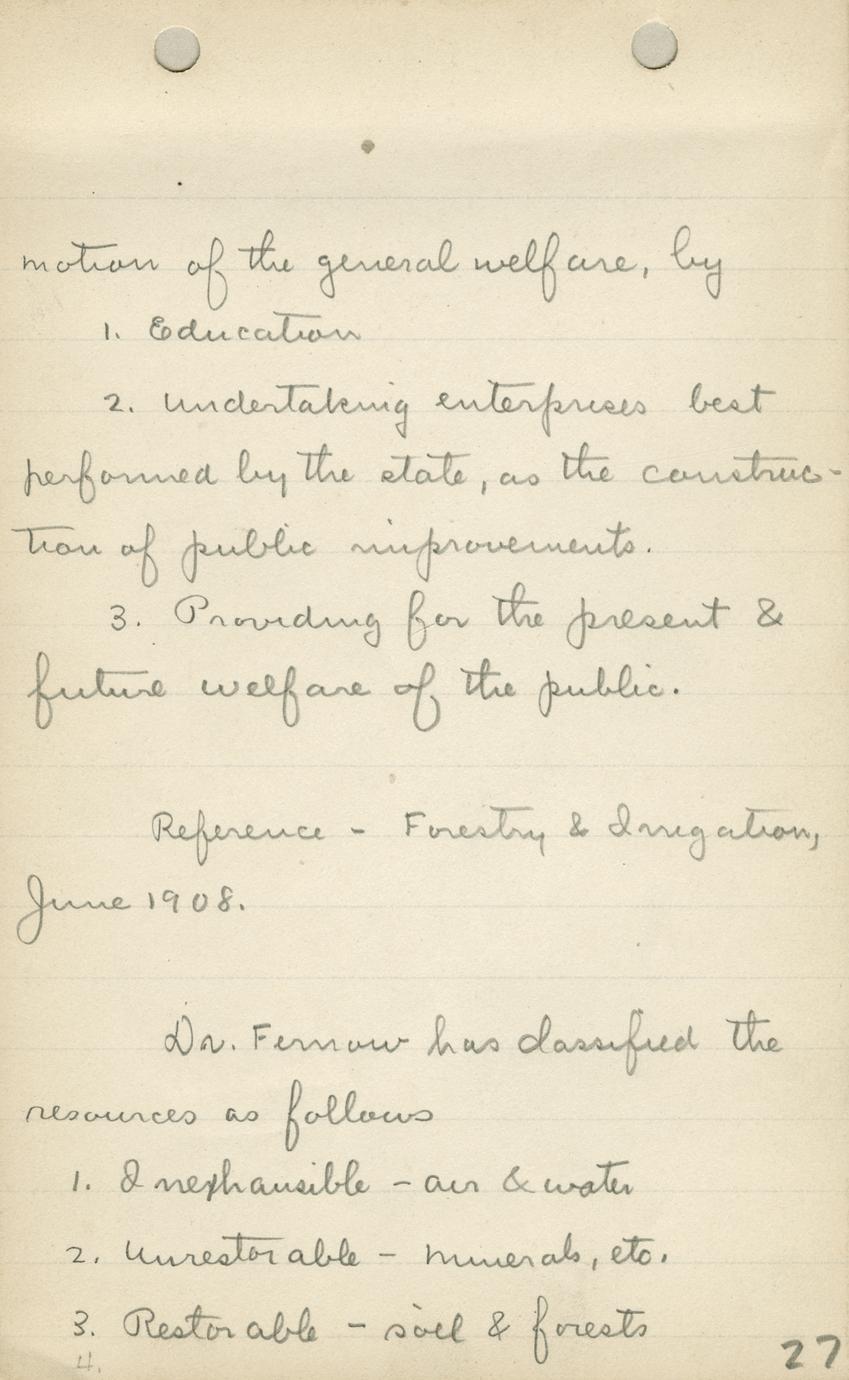 motion of the general welfare, by
1. Education
2. Undertaking enterprises best
performed by the state, as the construc-
tion of public improvements.
3. Providing for the present &
future welfare of the public.
Reference - Forestry & Irrigation,
June 1908.
Dr. Fernow has classified the
resources as follows
1. Inexhausible - air & water
2. Unrestorable - minerals, etc.
3. Restorable - soil & forests
4.
27